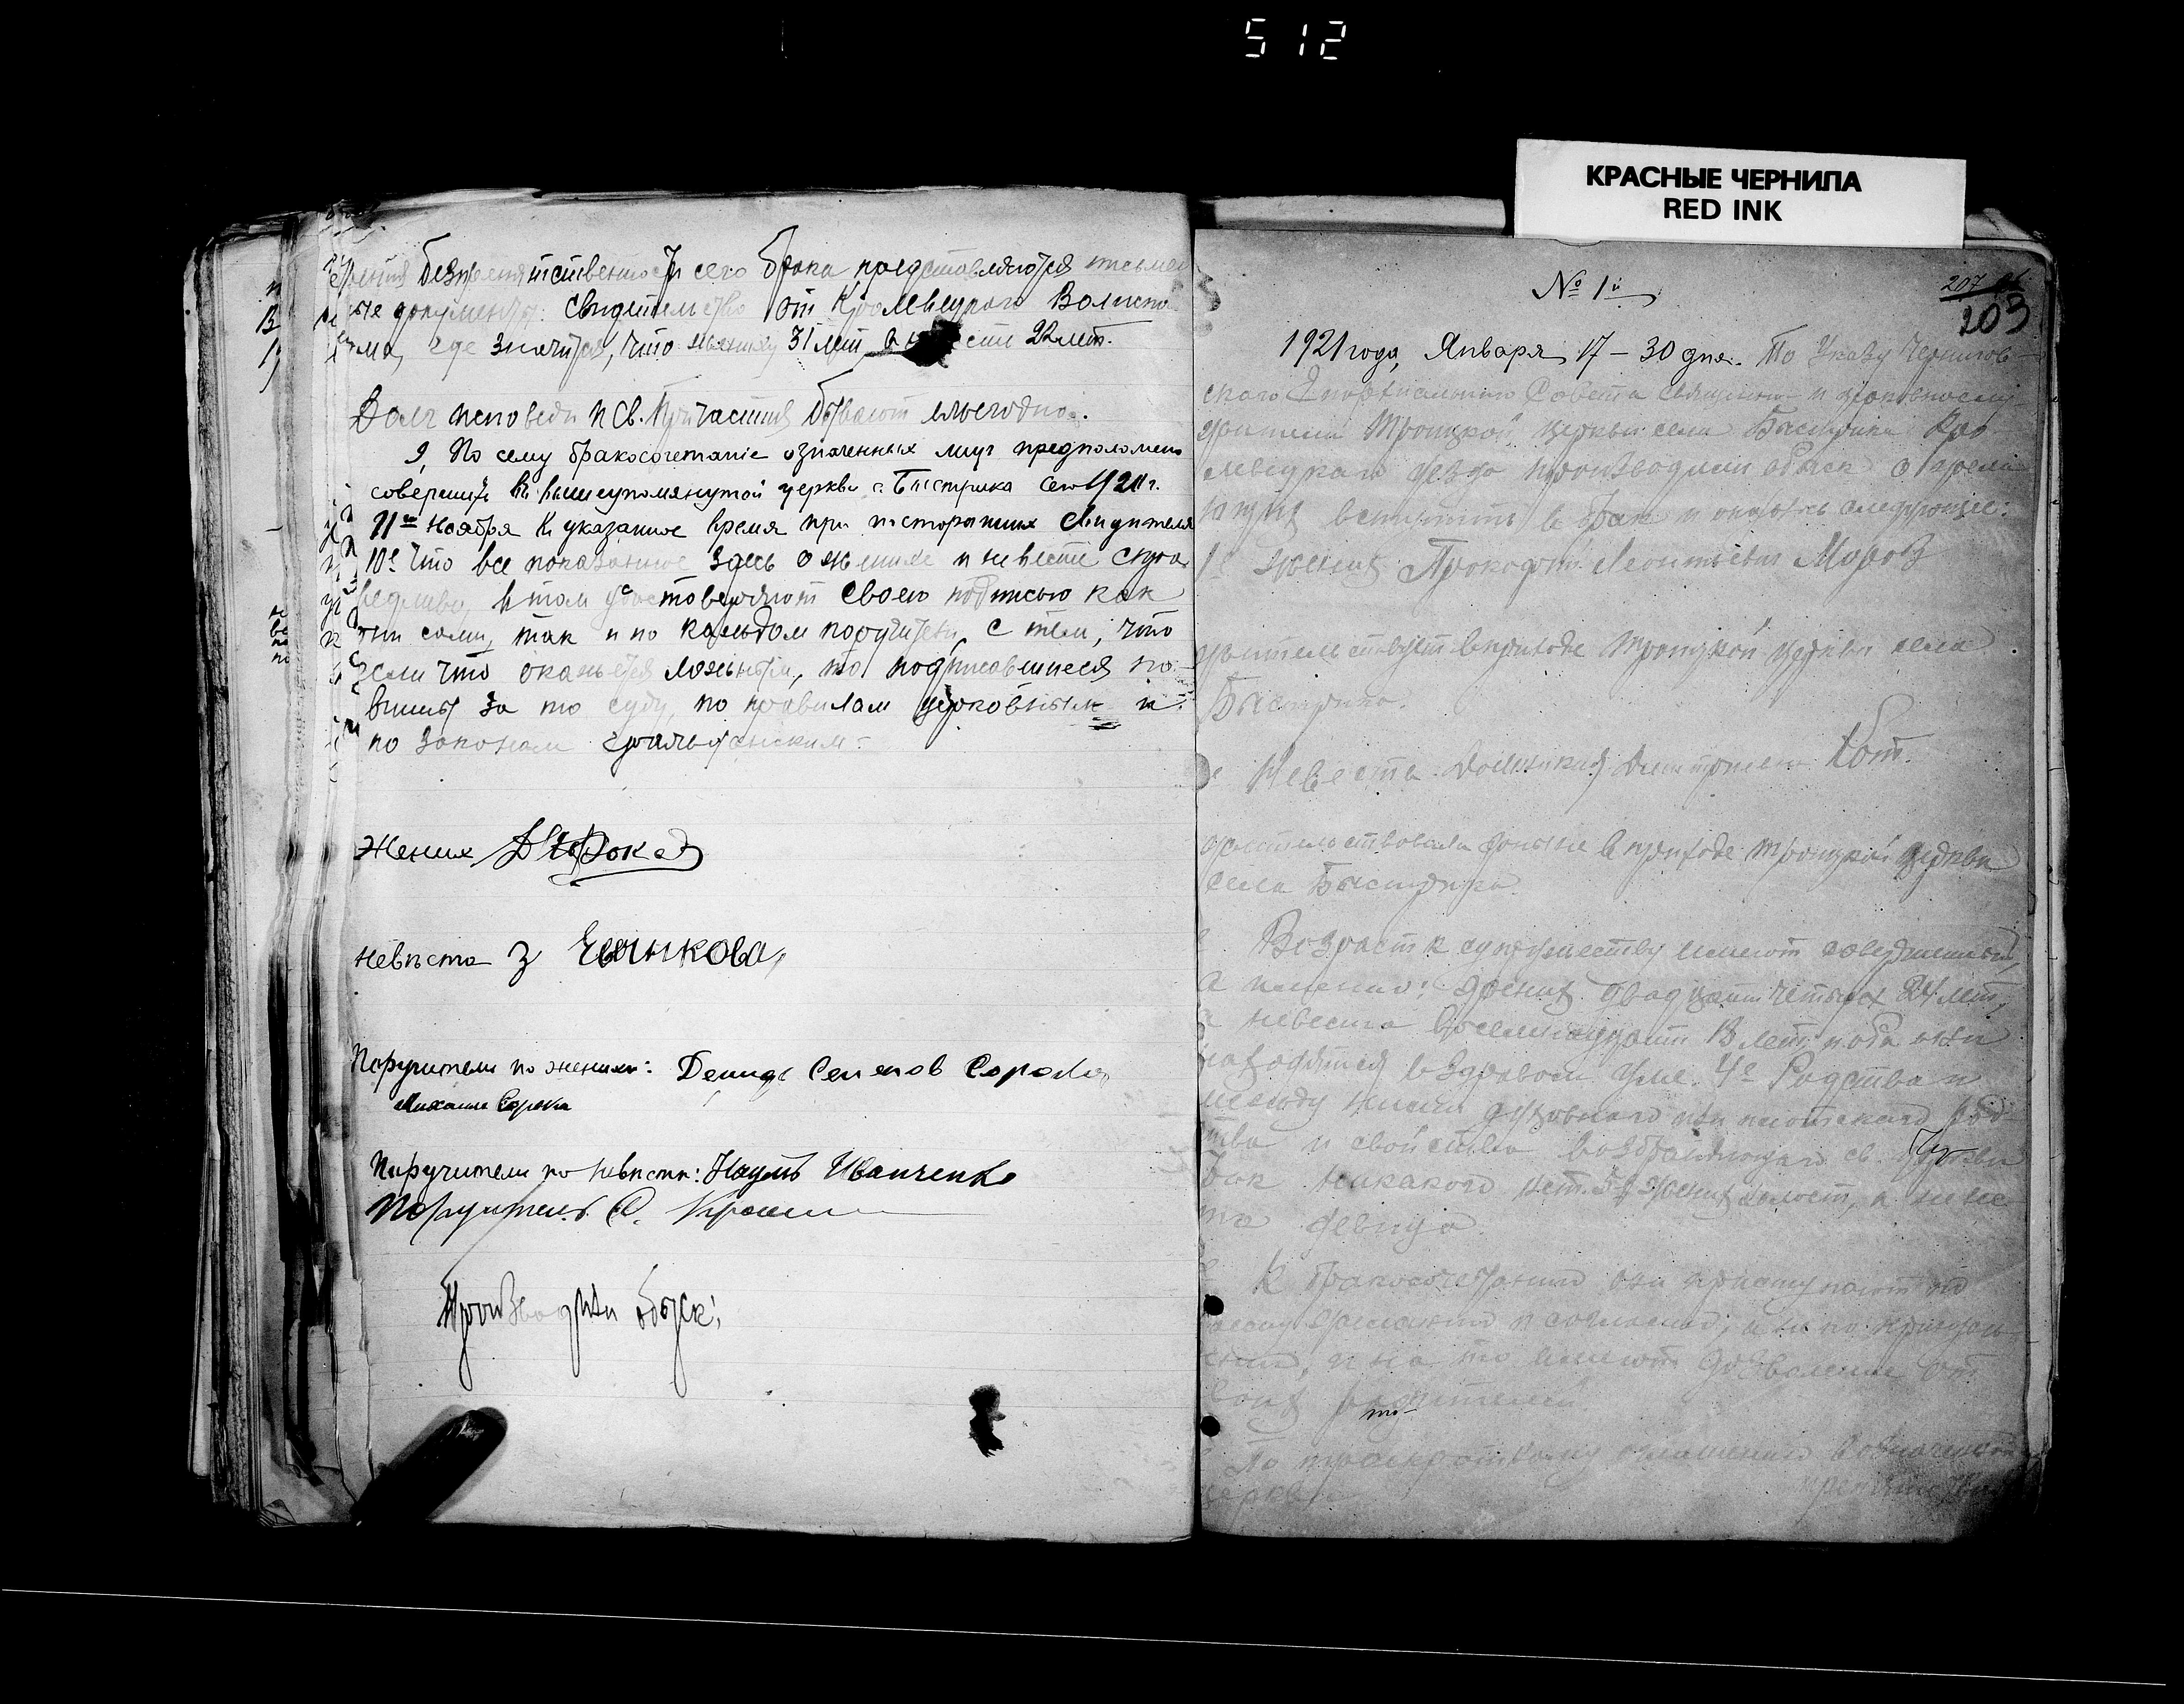 512
КРАСНЫЕ ЧЕРНИЛА
RED INK
безпрепятственности сего брака представляются письмен
ные документы: свидетельство от Кролевецкого Волиспо
кома, где значится, что жениху 31 лет а сте 22 лет.
исповеди и Св. Причастия бывают ежегодно.
9, По сему бракосочетание означенных лиц предположено
совершить в вышеупомянутой церкви с. Быстрика сего 1920 г.
11го ноября в указанное время при посторонних свидетелях
10е Что все показанное здесь о женихе и невесте спра
ведливо, в том удостоверяют своею подписью как
они сами, так и по каждом поручители, с тем, что
если что окажется ложным, то подписавшиеся по-
винны за то суду, по правилам церковным и
по законам гражданским.
Жених
Невѣста З
Поручители по женихѣ: Демидъ Семенов Сорока
Михаил Сорока
Поручители по невѣстѣ: Наумъ Иванченко
Поручитель С.
Производили обыск:
№ 1й
207 об
203
1921 года, Января 17 – 30 дня. По Указу Чернигов-
ского Епархиального Совета священно- и церковнослу-
жители Троицкой церкви села Быстрика Кро
левецкаго уезда производили обыск о желаю
щих вступить в брак и оказалось следующее:
1е Жених Прокофий Леонтьевич Мороз
жительствует в приходе Троицкой церкви села
Быстрика.
Невеста Дмитриевна Кот.
жительствовала доныне в приходе Троицкой церкви
села Быстрика.
Возраст к супружеству имеют совершенный,
а именно: жених двадцати четырех 24 лет,
а невеста восемнадцати 18 лет, и оба они
находятся в здравом уме. 4е Родства и
между ними духовного или плотского род-
ства и свойства возбраняющаго св. Церкви
брак никакого нет. 5е Жених холост, а неве
ста девица.
К бракосочетанию они приступают по
своему желанию и согласию, а не по принужде-
нию, и на то имеют дозволение от
своих родителей.
По троекратному оглашению в означенной
церкви